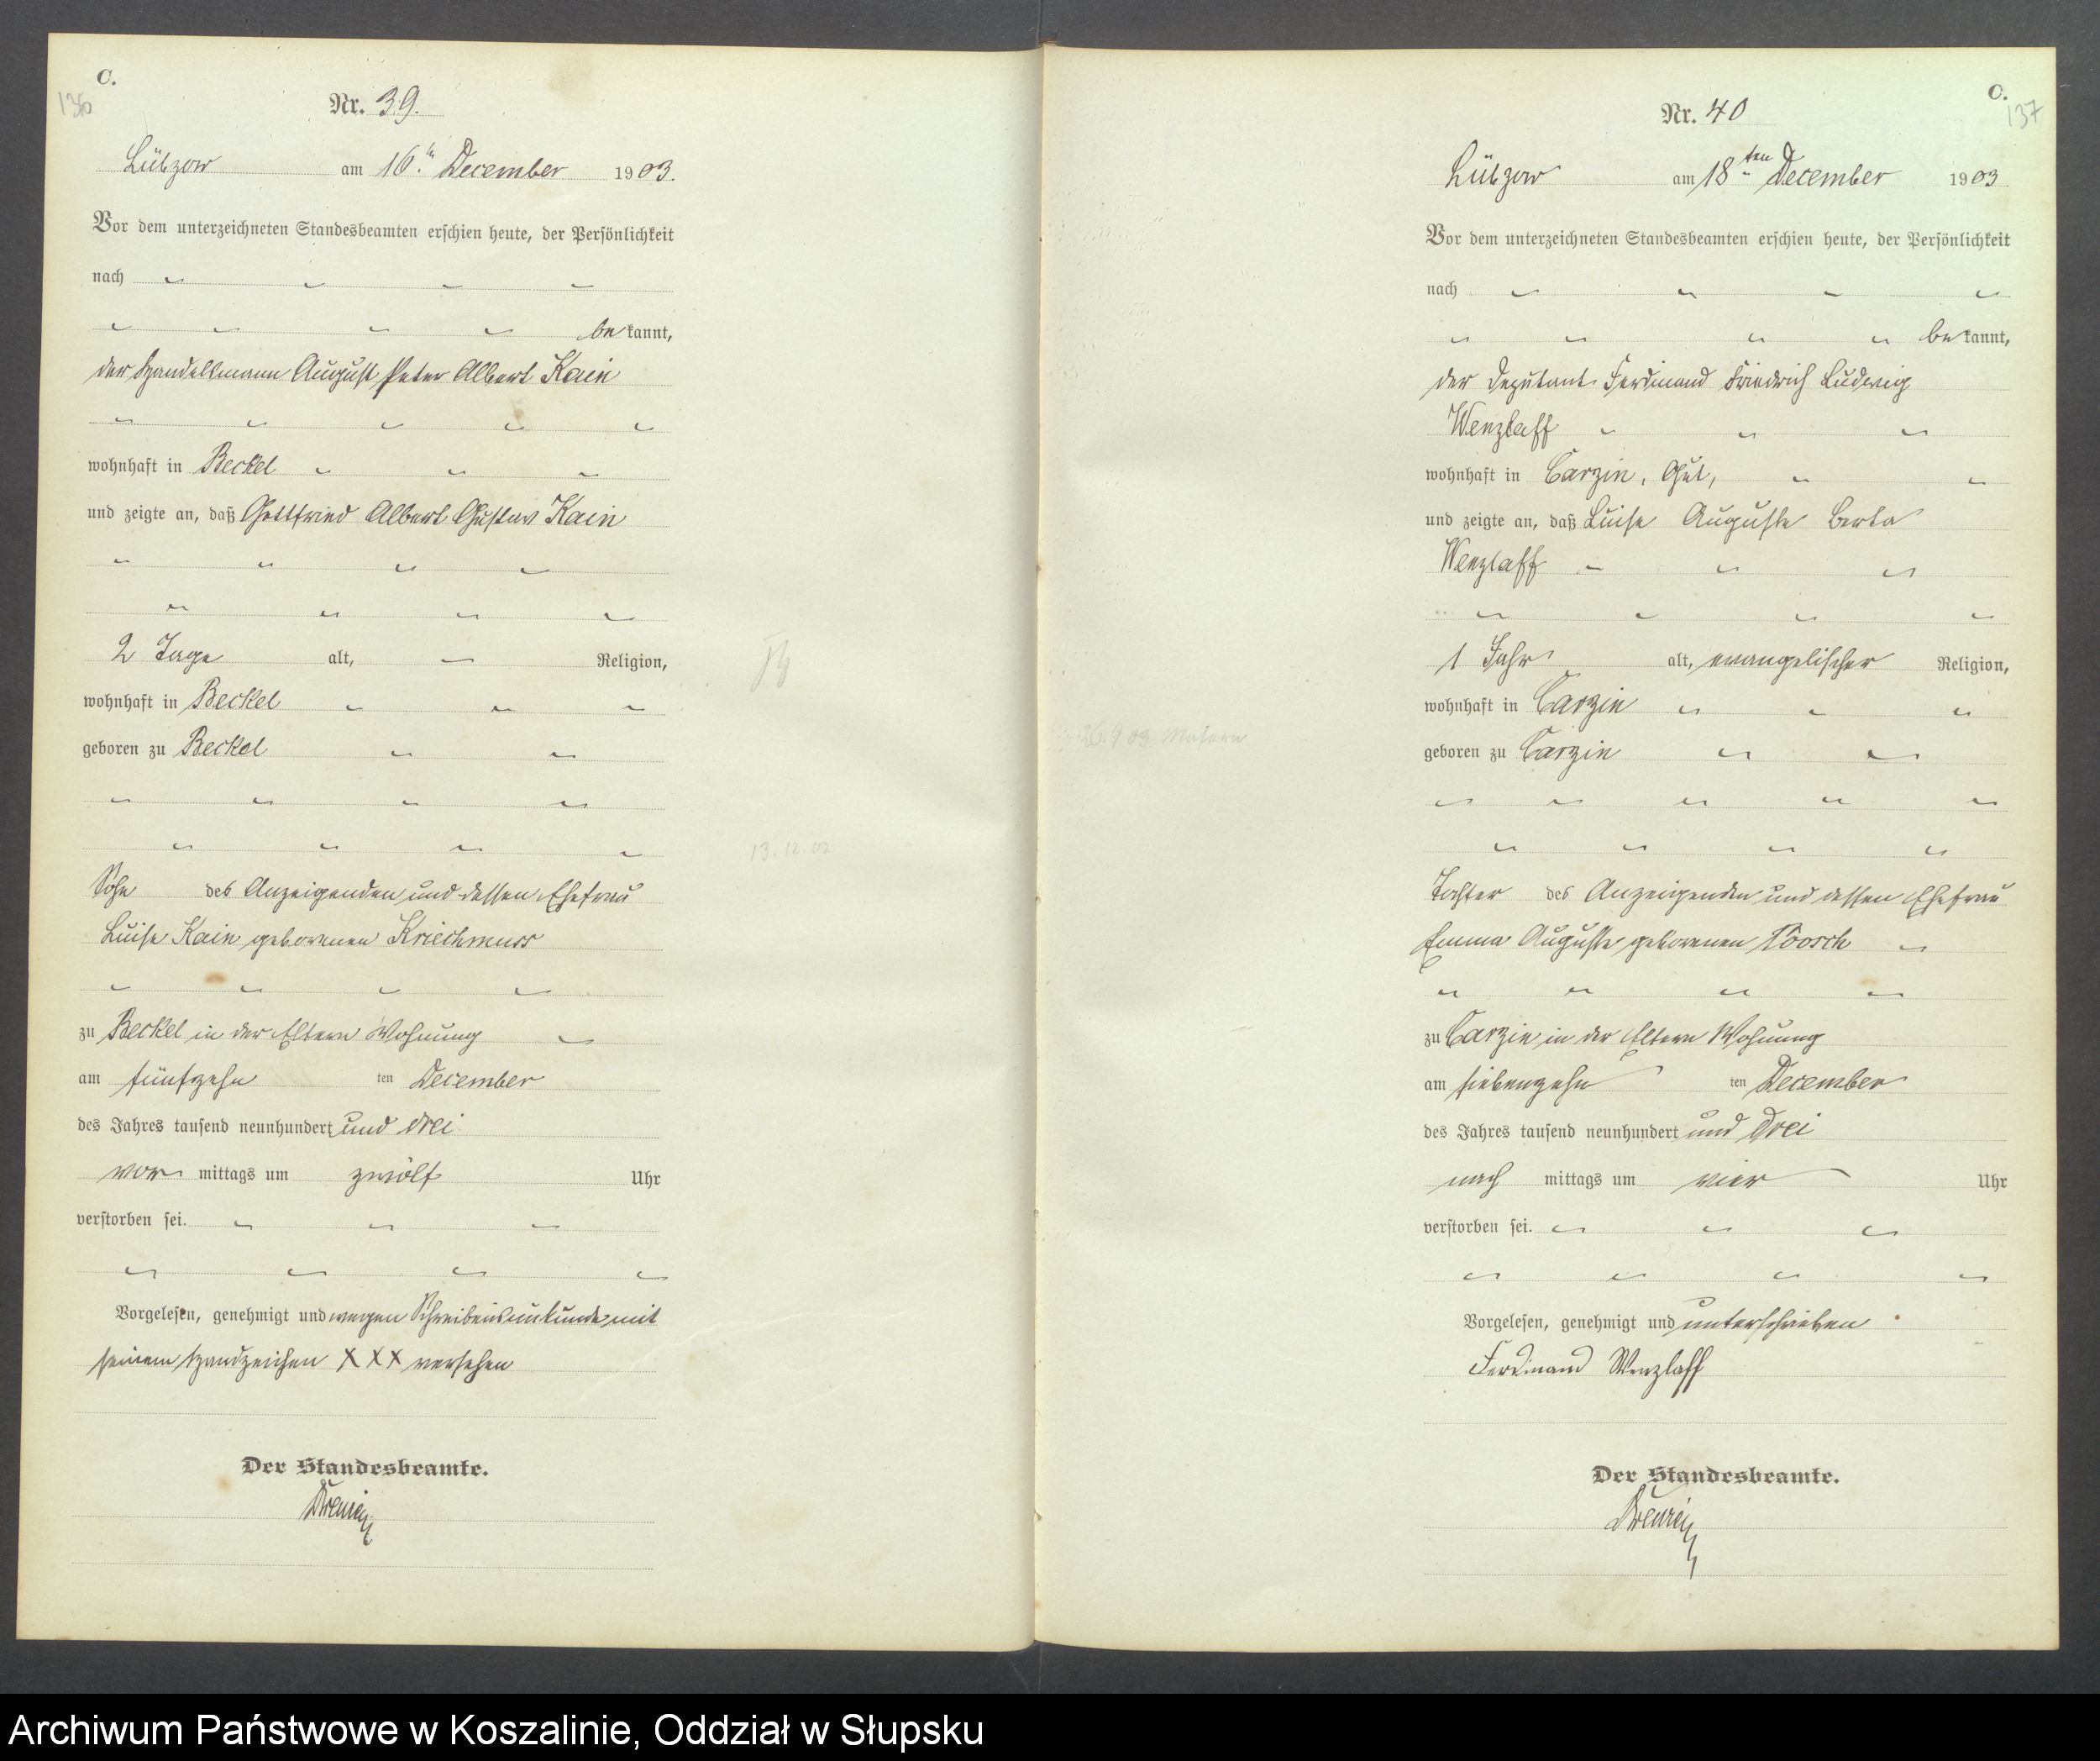 C.
136
Nr. 39.
Lübzow am 16ten December 1903.
Vor dem unterzeichneten Standesbeamten erschien heute, der Persönlichkeit
nach
bekannt,
der Handelsmann August Peter Albert Kain
wohnhaft in Beckel
und zeigte an, daß Gottfried Albert Gustav Kain
2 Tage alt, Religion,
wohnhaft in Beckel
geboren zu Beckel
13.12.03
Sohn des Anzeigenden und dessen Ehefrau
Luise Kain geborenen Kriechmuss
zu Beckel in der Eltern Wohnung
am fünfzehn ten December
des Jahres tausend neunhundert und drei
vor mittags um zwölf Uhr
verstorben sei.
Vorgelesen, genehmigt und wegen Schreibensunkunde mit
seinem Handzeichen XXX versehen
Der Standesbeamte.
C.
137
Nr. 40
Lübzow am 18ten December 1903
Vor dem unterzeichneten Standesbeamten erschien heute, der Persönlichkeit
nach
bekannt,
der Deputant Ferdinand Friedrich Ludwig
Wenzlaff
wohnhaft in Carzin, Gut,
und zeigte an, daß Luise Auguste Berta
Wenzlaff
1 Jahr alt, evangelischer Religion,
wohnhaft in Carzin
26.9.03 Masern
geboren zu Carzin
Tochter des Anzeigenden und dessen Ehefrau
Emma Auguste geborenen Poosch
zu Carzin in der Eltern Wohnung
am siebenzehn ten December
des Jahres tausend neunhundert und drei
nach mittags um vier Uhr
verstorben sei.
Vorgelesen, genehmigt und unterschrieben
Ferdinand Wenzlaff
Der Standesbeamte.
Archiwum Państwowe w Koszalinie, Oddział w Słupsku